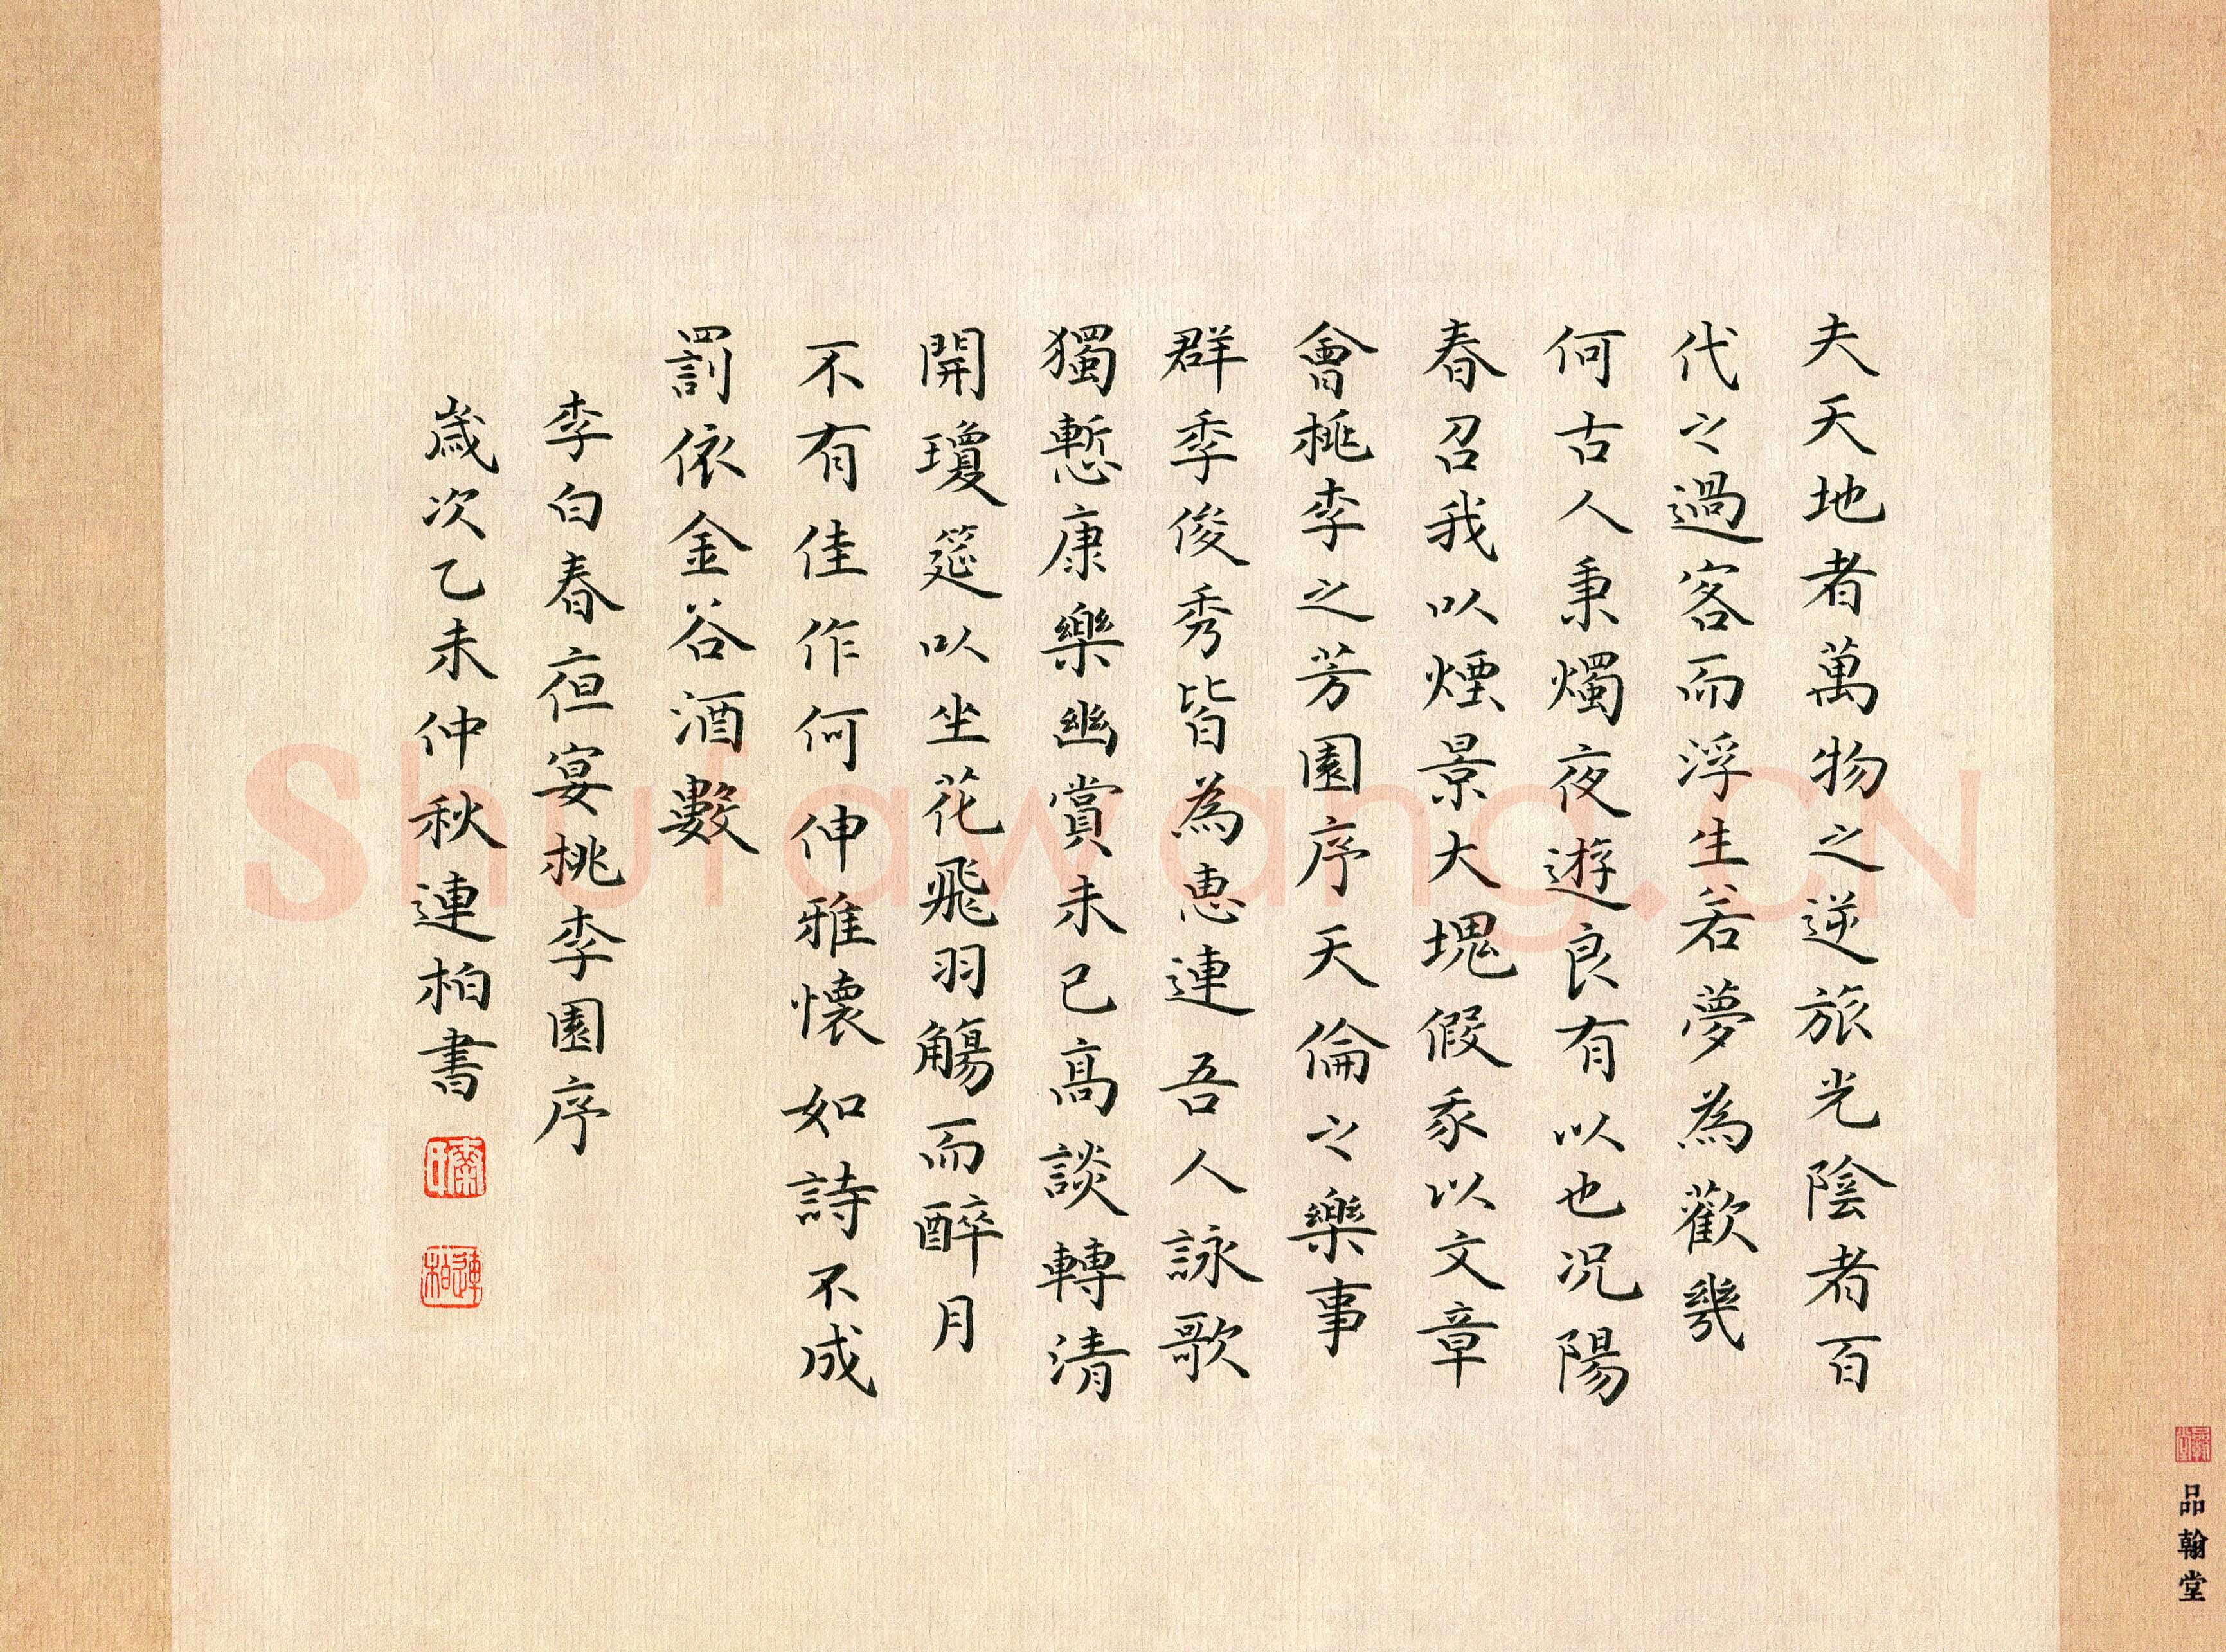 夫天地者萬物之逆旅光陰者百
代之過客而浮生若夢為歡幾
何古人秉燭夜遊良有以也況陽
春召我以煙景大塊假我以文章
會桃李之芳園序天倫之樂事
群季俊秀皆為惠連吾人詠歌
獨慙康樂幽賞未已高談轉清
開瓊筵以坐花飛羽觴而醉月
不有佳作何伸雅懷如詩不成
罰依金谷酒數
李白春夜宴桃李園序
歲次乙未仲秋連柏書
連柏
品翰堂
shufawang.CN